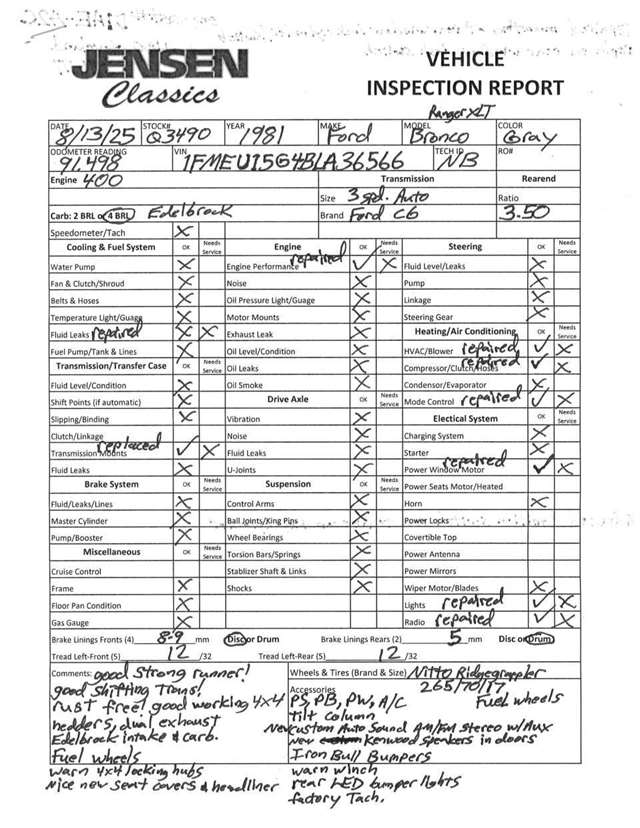 JENSEN
Classics
VEHICLE
INSPECTION REPORT
DATE 8/13/25 STOCK# Q3490 YEAR 1981 MAKE Ford MODEL Ranger XLT Bronco COLOR Gray
ODOMETER READING 91,498 VIN 1FMEU15G4BLA36566 TECH ID NB RO#
Engine 400 Transmission Rearend
Size 3 spd. Auto Ratio
Carb: 2 BRL or 4 BRL Edelbrock Brand Ford C6 3.50
Speedometer/Tach X
Cooling & Fuel System OK Needs Service Engine OK Needs Service Steering OK Needs Service
Water Pump X Engine Performance repaired ✓ X Fluid Level/Leaks X
Fan & Clutch/Shroud X Noise X Pump X
Belts & Hoses X Oil Pressure Light/Guage X Linkage X
Temperature Light/Guagg X Motor Mounts X Steering Gear X
Fluid Leaks repaired X X Exhaust Leak X Heating/Air Conditioning OK Needs Service
Fuel Pump/Tank & Lines X Oil Level/Condition X HVAC/Blower repaired ✓ X
Transmission/Transfer Case OK Needs Service Oil Leaks X Compressor/Clutch/Hoses repaired ✓ X
Fluid Level/Condition X Oil Smoke X Condensor/Evaporator X
Shift Points (if automatic) X Drive Axle OK Needs Service Mode Control repaired ✓ X
Slipping/Binding X Vibration X Electical System OK Needs Service
Clutch/Linkage Noise X Charging System X
Transmission Mounts replaced ✓ X Fluid Leaks X Starter X
Fluid Leaks X U-Joints X Power Window Motor repaired ✓ X
Brake System OK Needs Service Suspension OK Needs Service Power Seats Motor/Heated
Fluid/Leaks/Lines X Control Arms X Horn X
Master Cylinder X Ball Joints/King Pins X Power Locks
Pump/Booster X Wheel Bearings X Covertible Top
Miscellaneous OK Needs Service Torsion Bars/Springs X Power Antenna
Cruise Control Stablizer Shaft & Links X Power Mirrors
Frame X Shocks X Wiper Motor/Blades X
Floor Pan Condition X Lights repaired ✓ X
Gas Gauge X Radio repaired ✓ X
Brake Linings Fronts (4) 8-9 mm Disc or Drum Brake Linings Rears (2) 5 mm Disc or Drum
Tread Left-Front (5) 12 /32 Tread Left-Rear (5) 12 /32
Comments: good strong runner!
good shifting Trans!
rust free! good working 4x4
hedders, dual exhaust
Edelbrock intake & carb.
Fuel wheels
warn 4x4 locking hubs
Nice new seat covers & headliner
Wheels & Tires (Brand & Size) Nitto Ridgegrappler
265/70/17
Fuel wheels
Accessories
PS, PB, PW, A/C
tilt column
New Custom Auto Sound AM/FM Stereo w/Aux
new Kenwood speakers in doors
Iron Bull Bumpers
warn winch
rear LED bumper lights
factory Tach.